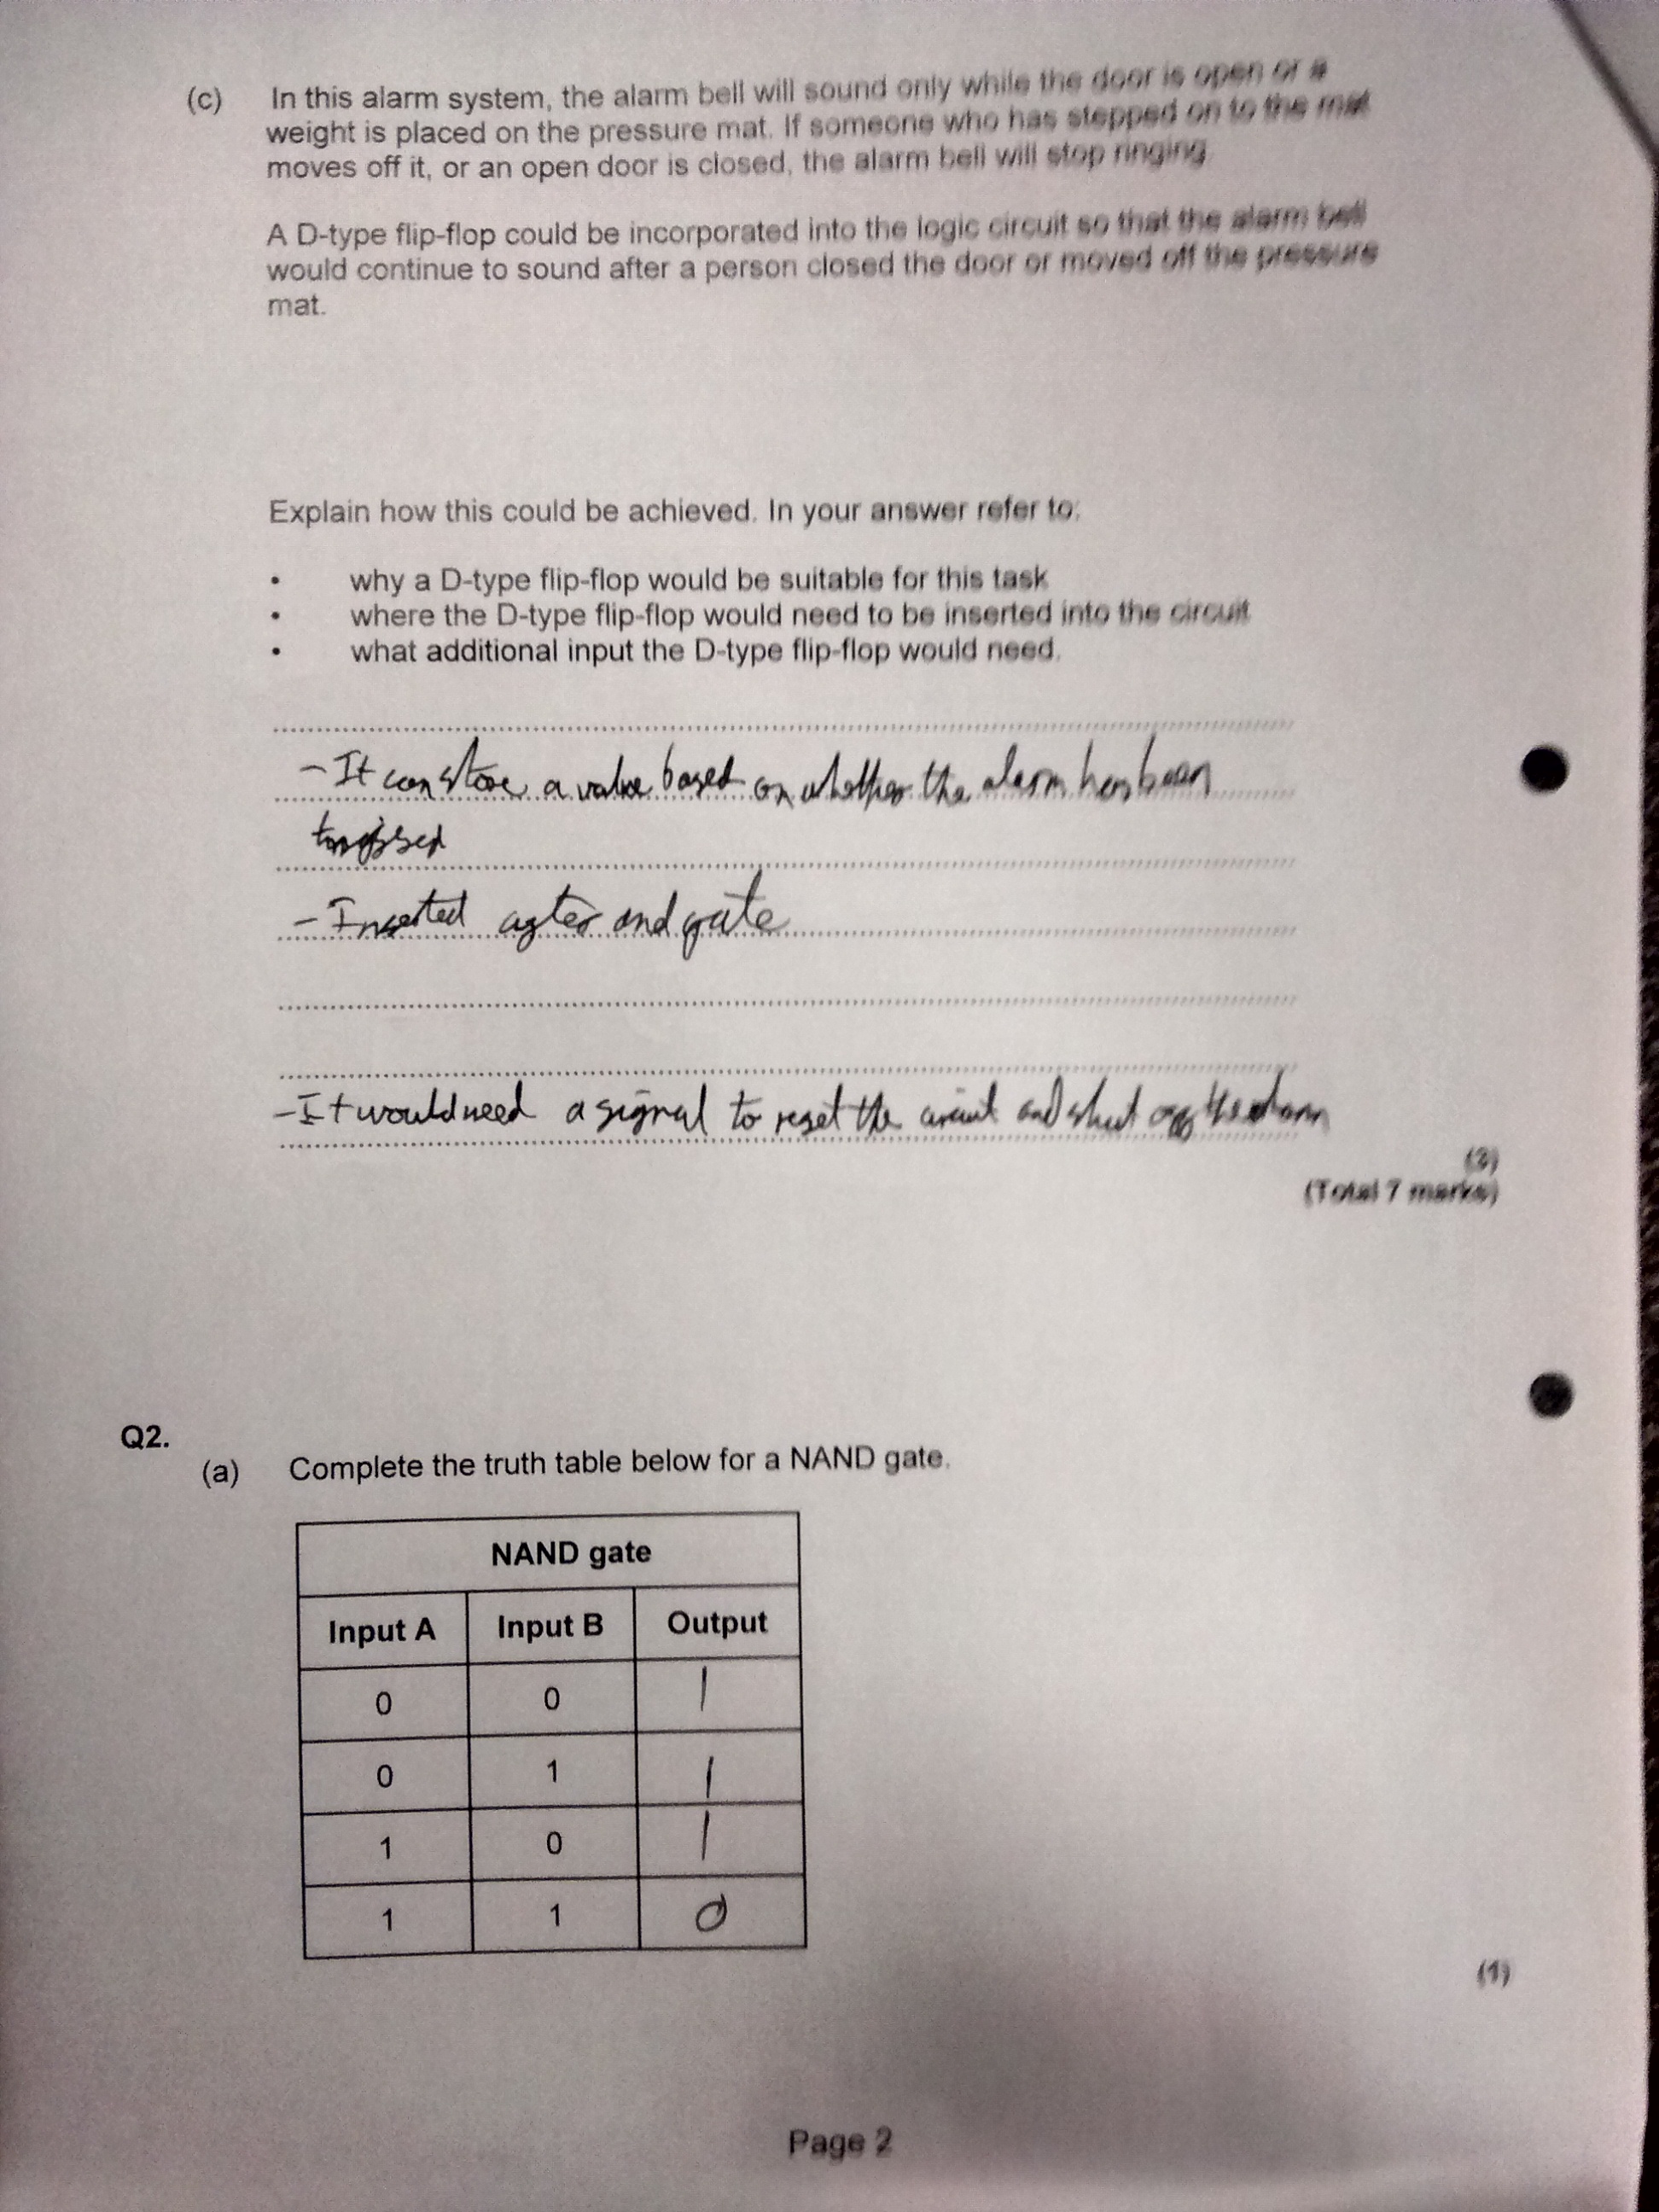 (c) In this alarm system, the alarm bell will sound only while the door is open or a
weight is placed on the pressure mat. If someone who has stepped on to the mat
moves off it, or an open door is closed, the alarm bell will stop ringing.
A D-type flip-flop could be incorporated into the logic circuit so that the alarm bell
would continue to sound after a person closed the door or moved off the pressure
mat.
Explain how this could be achieved. In your answer refer to:
• why a D-type flip-flop would be suitable for this task
• where the D-type flip-flop would need to be inserted into the circuit
• what additional input the D-type flip-flop would need.
- It can store a value based on whether the alarm has been
- Inserted after and gate
- It would need a signal to reset the circuit and shut off the alarm
(3)
(Total 7 marks)
Q2.
(a) Complete the truth table below for a NAND gate.
NAND gate
Input A Input B Output
0 0 1
0 1 1
1 0 1
1 1 0
(1)
Page 2